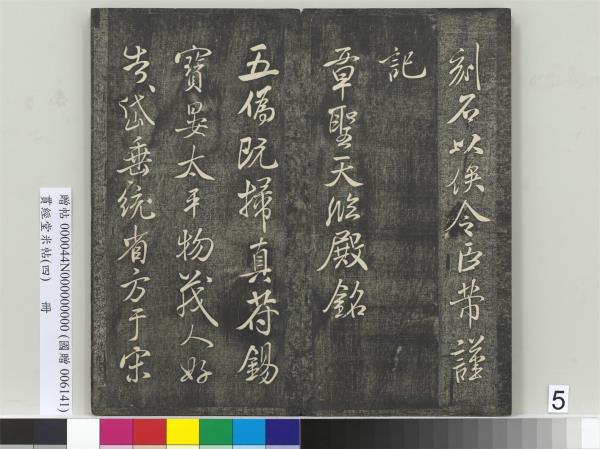 刻石以俟令臣芾謹
記
章聖天臨殿銘
五僞既掃真符錫
寶晏太平物茂人好
告岱垂統省方于宋
贈帖 000044N000000000 (國贈 006141)
貫經堂米帖(四) 冊
5